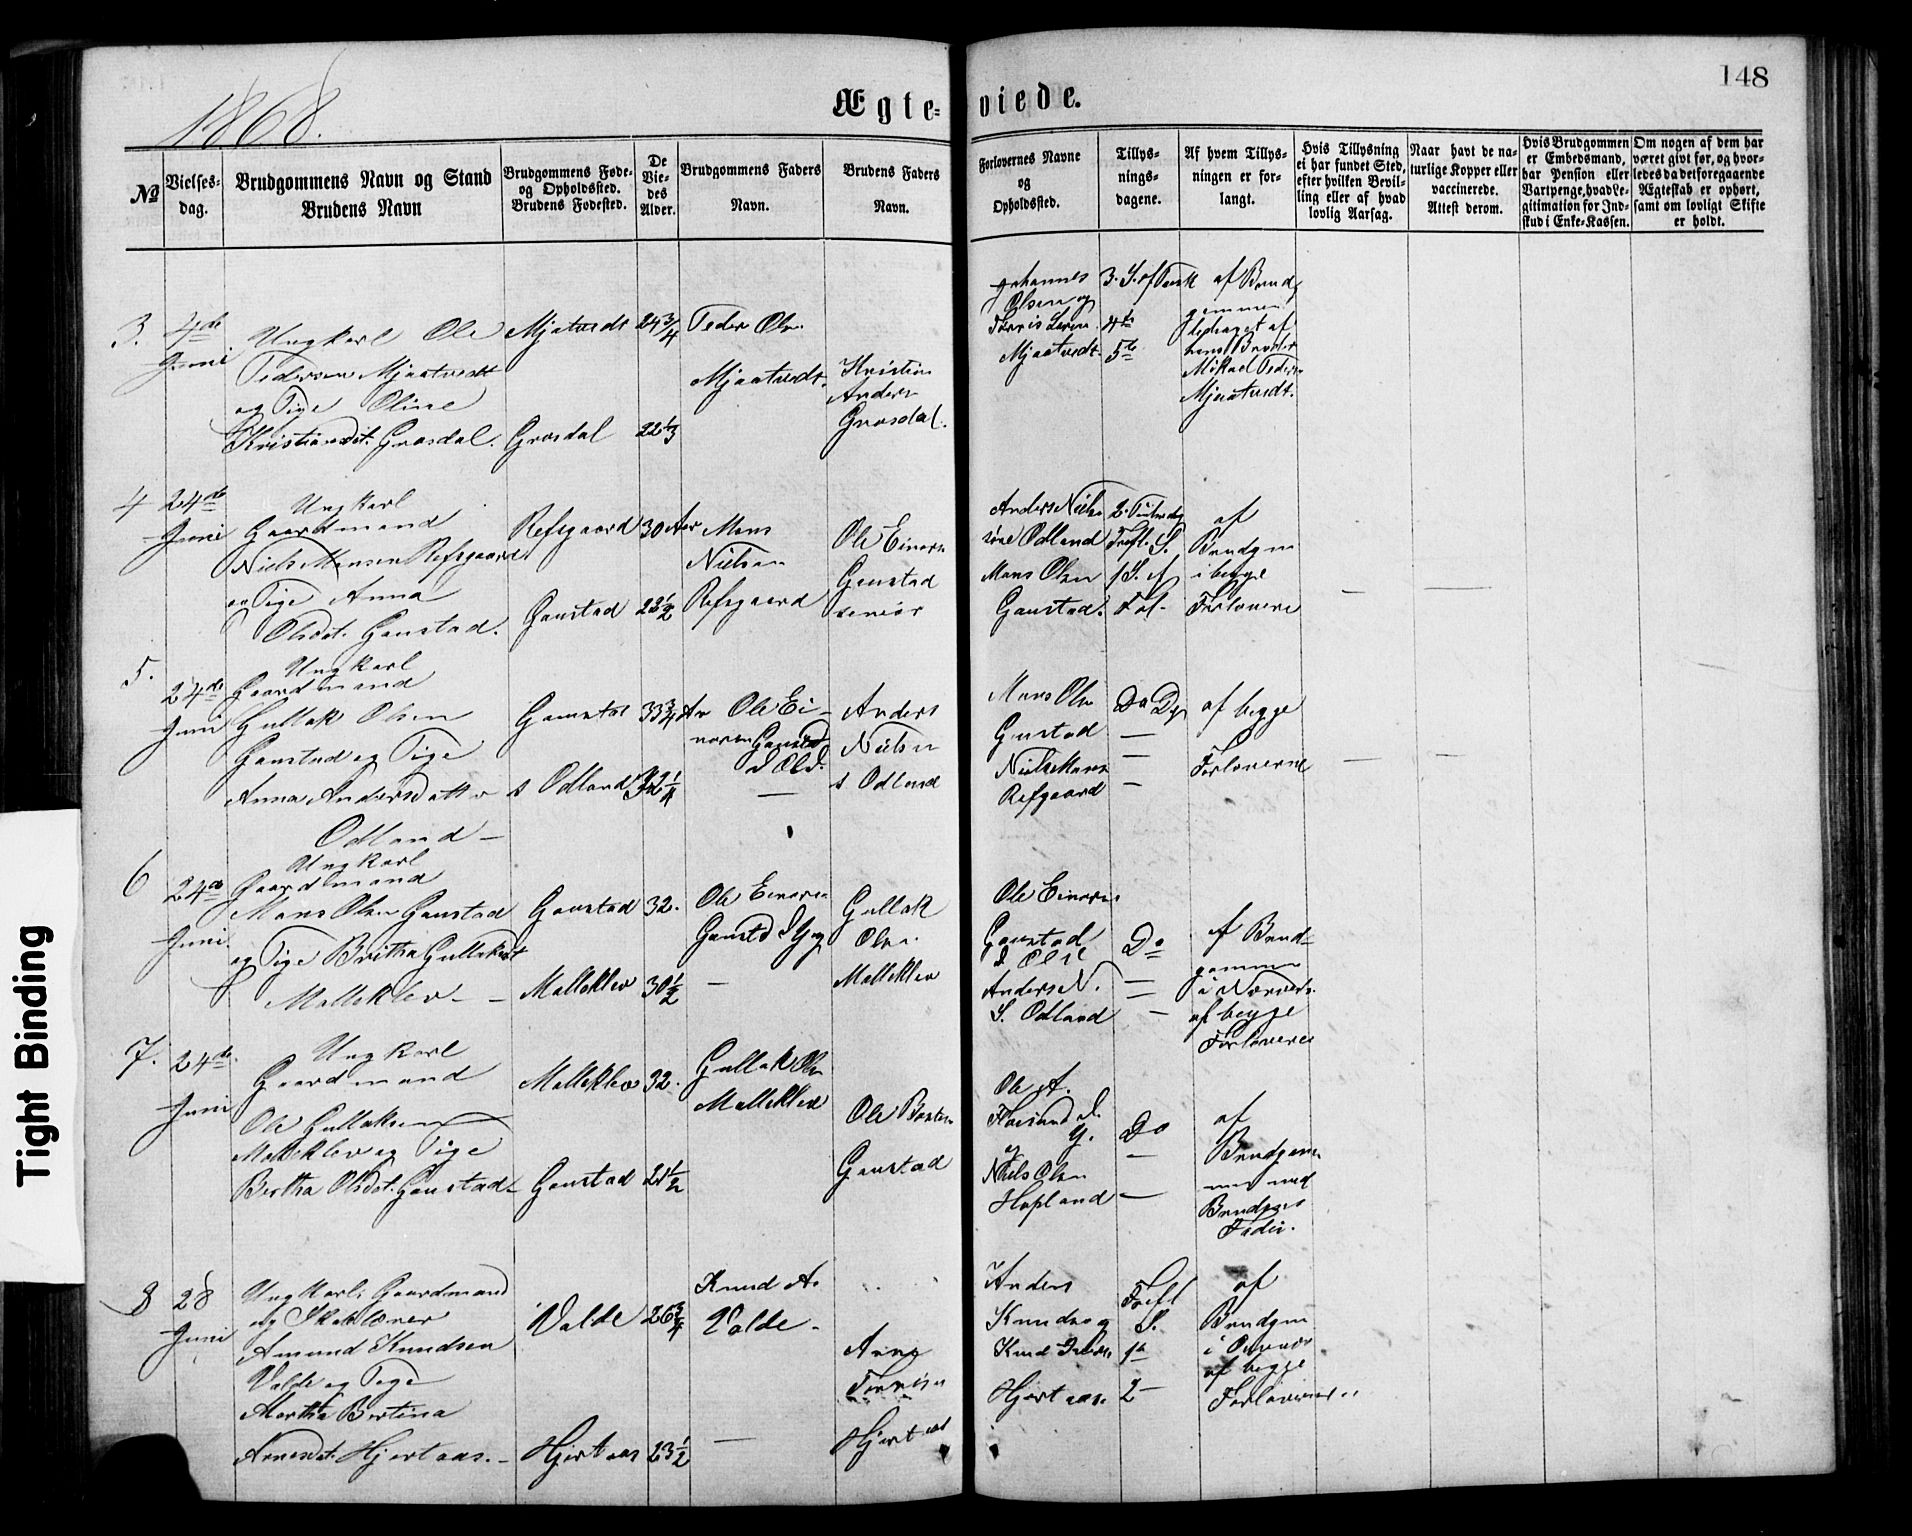 148
1868.
Ægteviede.
No
Vielsesdag.
Brudgommens Navn og Stand
Brudens Navn
Brudgommens Føde-
og Opholdssted.
Brudens Fødested.
De
Vie-
des
Alder.
Brudgommens Faders
Navn.
Brudens Faders
Navn.
Forlovernes Navne
og
Opholdssted.
Tillys-
nings-
dagene.
Af hvem Tillys-
ningen er for-
langt.
Hvis Tillysning
ei har fundet Sted,
efter hvilken Bevil-
ling eller af hvad
lovlig Aarsag.
Naar havt de na-
turlige Kopper eller
vaccinerede.
Attest derom.
Hvis Brudgommen
er Embedsmand,
har Pension eller
Vartpenge, hvad Le-
gitimation for Ind-
skud i Enke-Kassen.
Om nogen af dem har
været givt før, og hvor-
ledes da det foregaaende
Ægteskab er ophørt,
samt om lovligt Skifte
er holdt.
3. 4de Juni
Ungkarl Ole
Pedersen Mjaatvedt
og Pige Oline
Kristiansdt. Grøsdal.
Mjatvedt
Grøsdal
24 3/4
22 1/3
Peder Olsn
Mjaatvedt.
Kristian
Anders
Grøsdal.
Johannes
Olsen og
Mjaatvedt.
3. S. af
4de
5te
af Brud
gommen
hans Broder
Mikael Peders
Mjaatvedt.
4 24de Juni
Ungkarl
Gaardmand
Niels Monsen Refsgaard
og Pige Anna
Olsdt. Gaustad.
Refsgaard
Gaustad
30 Aar
23 1/2
Mons
Nielsen
Refsgaard
Ole Einars
Gaustad
senior
Anders Niels
Odland
Mons Olsn
Gaustad.
af
Brudgm
i begge
Forlovere
5. 24de Juni
Ungkarl
Gaardmand
Gullak Olsen
Gaustad og Pige
Anna Andersdatter
Odland –
Gaustad
s Odland
33 3/4
32 1/4
Ole Ei-
narsn Gaustad
Anders
Nielsn
s Odland
Mons Olsn
Gaustad
Niels Mons
Refgaard
Do
af begge
Forloverne
6 24de Juni
Ungkarl
Gaardmand
Mons Olsen Gaustad
og Pige Britha Gullaksdt
Molleklev –
Gaustad
Molleklev
32.
30 1/2
Ole Einars
Gaustd d Yng
Gullak
Olsn
Molleklev
Ole Einars
Gaustad
Anders N.
S. Odland
Do
af Brud-
gommen
i
af begge
Forlovere
7. 24de Juni
Ungkarl
Gaardmand
Ole Gullaksen
Molleklev og Pige
Bertha Olsdt. Gaustad –
Molleklev
Gaustad
32.
21 1/2
Gullak Olsn
Molleklev
Ole
Gaustad
Ole A.
d. Y.
og
Niels Olsn
Hopland
Do
af
Brudgom-
men med
Brudens
Fader.
8 28 Juni
Ungkarl, Gaardmand
og
Amund Knudsen
Valde og Pige
Martha Bertina
Arnesdt. Hjertaas. –
Valde
Hjertaas
26 3/4
23 1/2
Knud A.
Valde –
Arne
Hjertaas
Anders
Knuds og
Knud
Hjertaas.
S.
1ste
2 –
af
Brudgm
i
af begge
Forlovere
Tight Binding